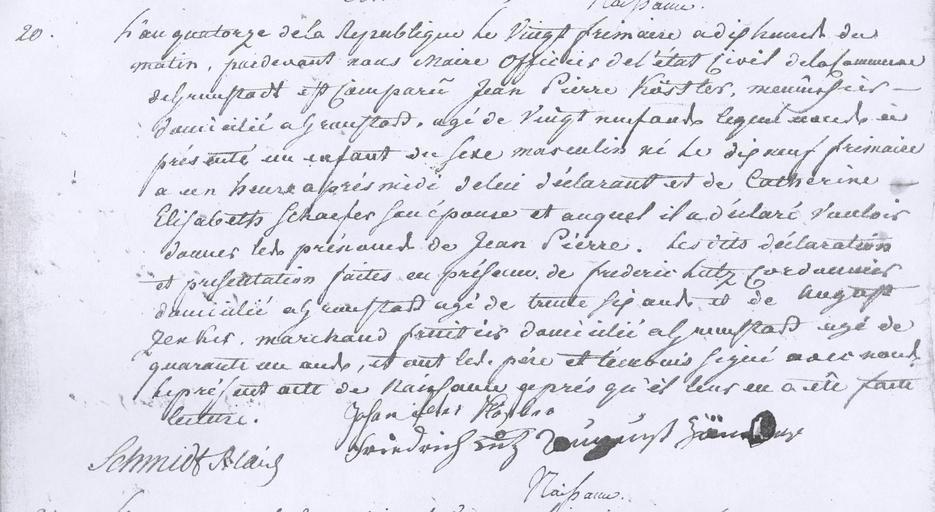 Naissance.
20. L'an quatorze de la Republique le Vingt frimaire a dix heures du
matin, pardevant nous Maire Officier de l'état Civil de la Commune
de Grunstadt est Comparû Jean Pierre Köstler, menuissier
domicilié a Grunstadt, agé de Vingt neuf ands lequel nous a
présenté un enfant du sexe masculin né le dix neuf frimaire
a un heure après midi de lui déclarant et de Catherine
Elisabeth Schaefer son épouse et auquel il a déclaré Vouloir
donner les prénoms de Jean Piérre. Les dits déclaration
et présentation faites en présence de frederic Lutz Cordonnier
domicilié a Grunstadt agé de trente six ands et de August
marchand fruitier domicilié a Grunstadt agé de
quarante un ands, et ont les père et temoins signé avec nous
le présent acte de Naissance après qu'il leur en a été faite
lecture.
Johan
Friedrich Lutz August
Schmidt
Naissance.